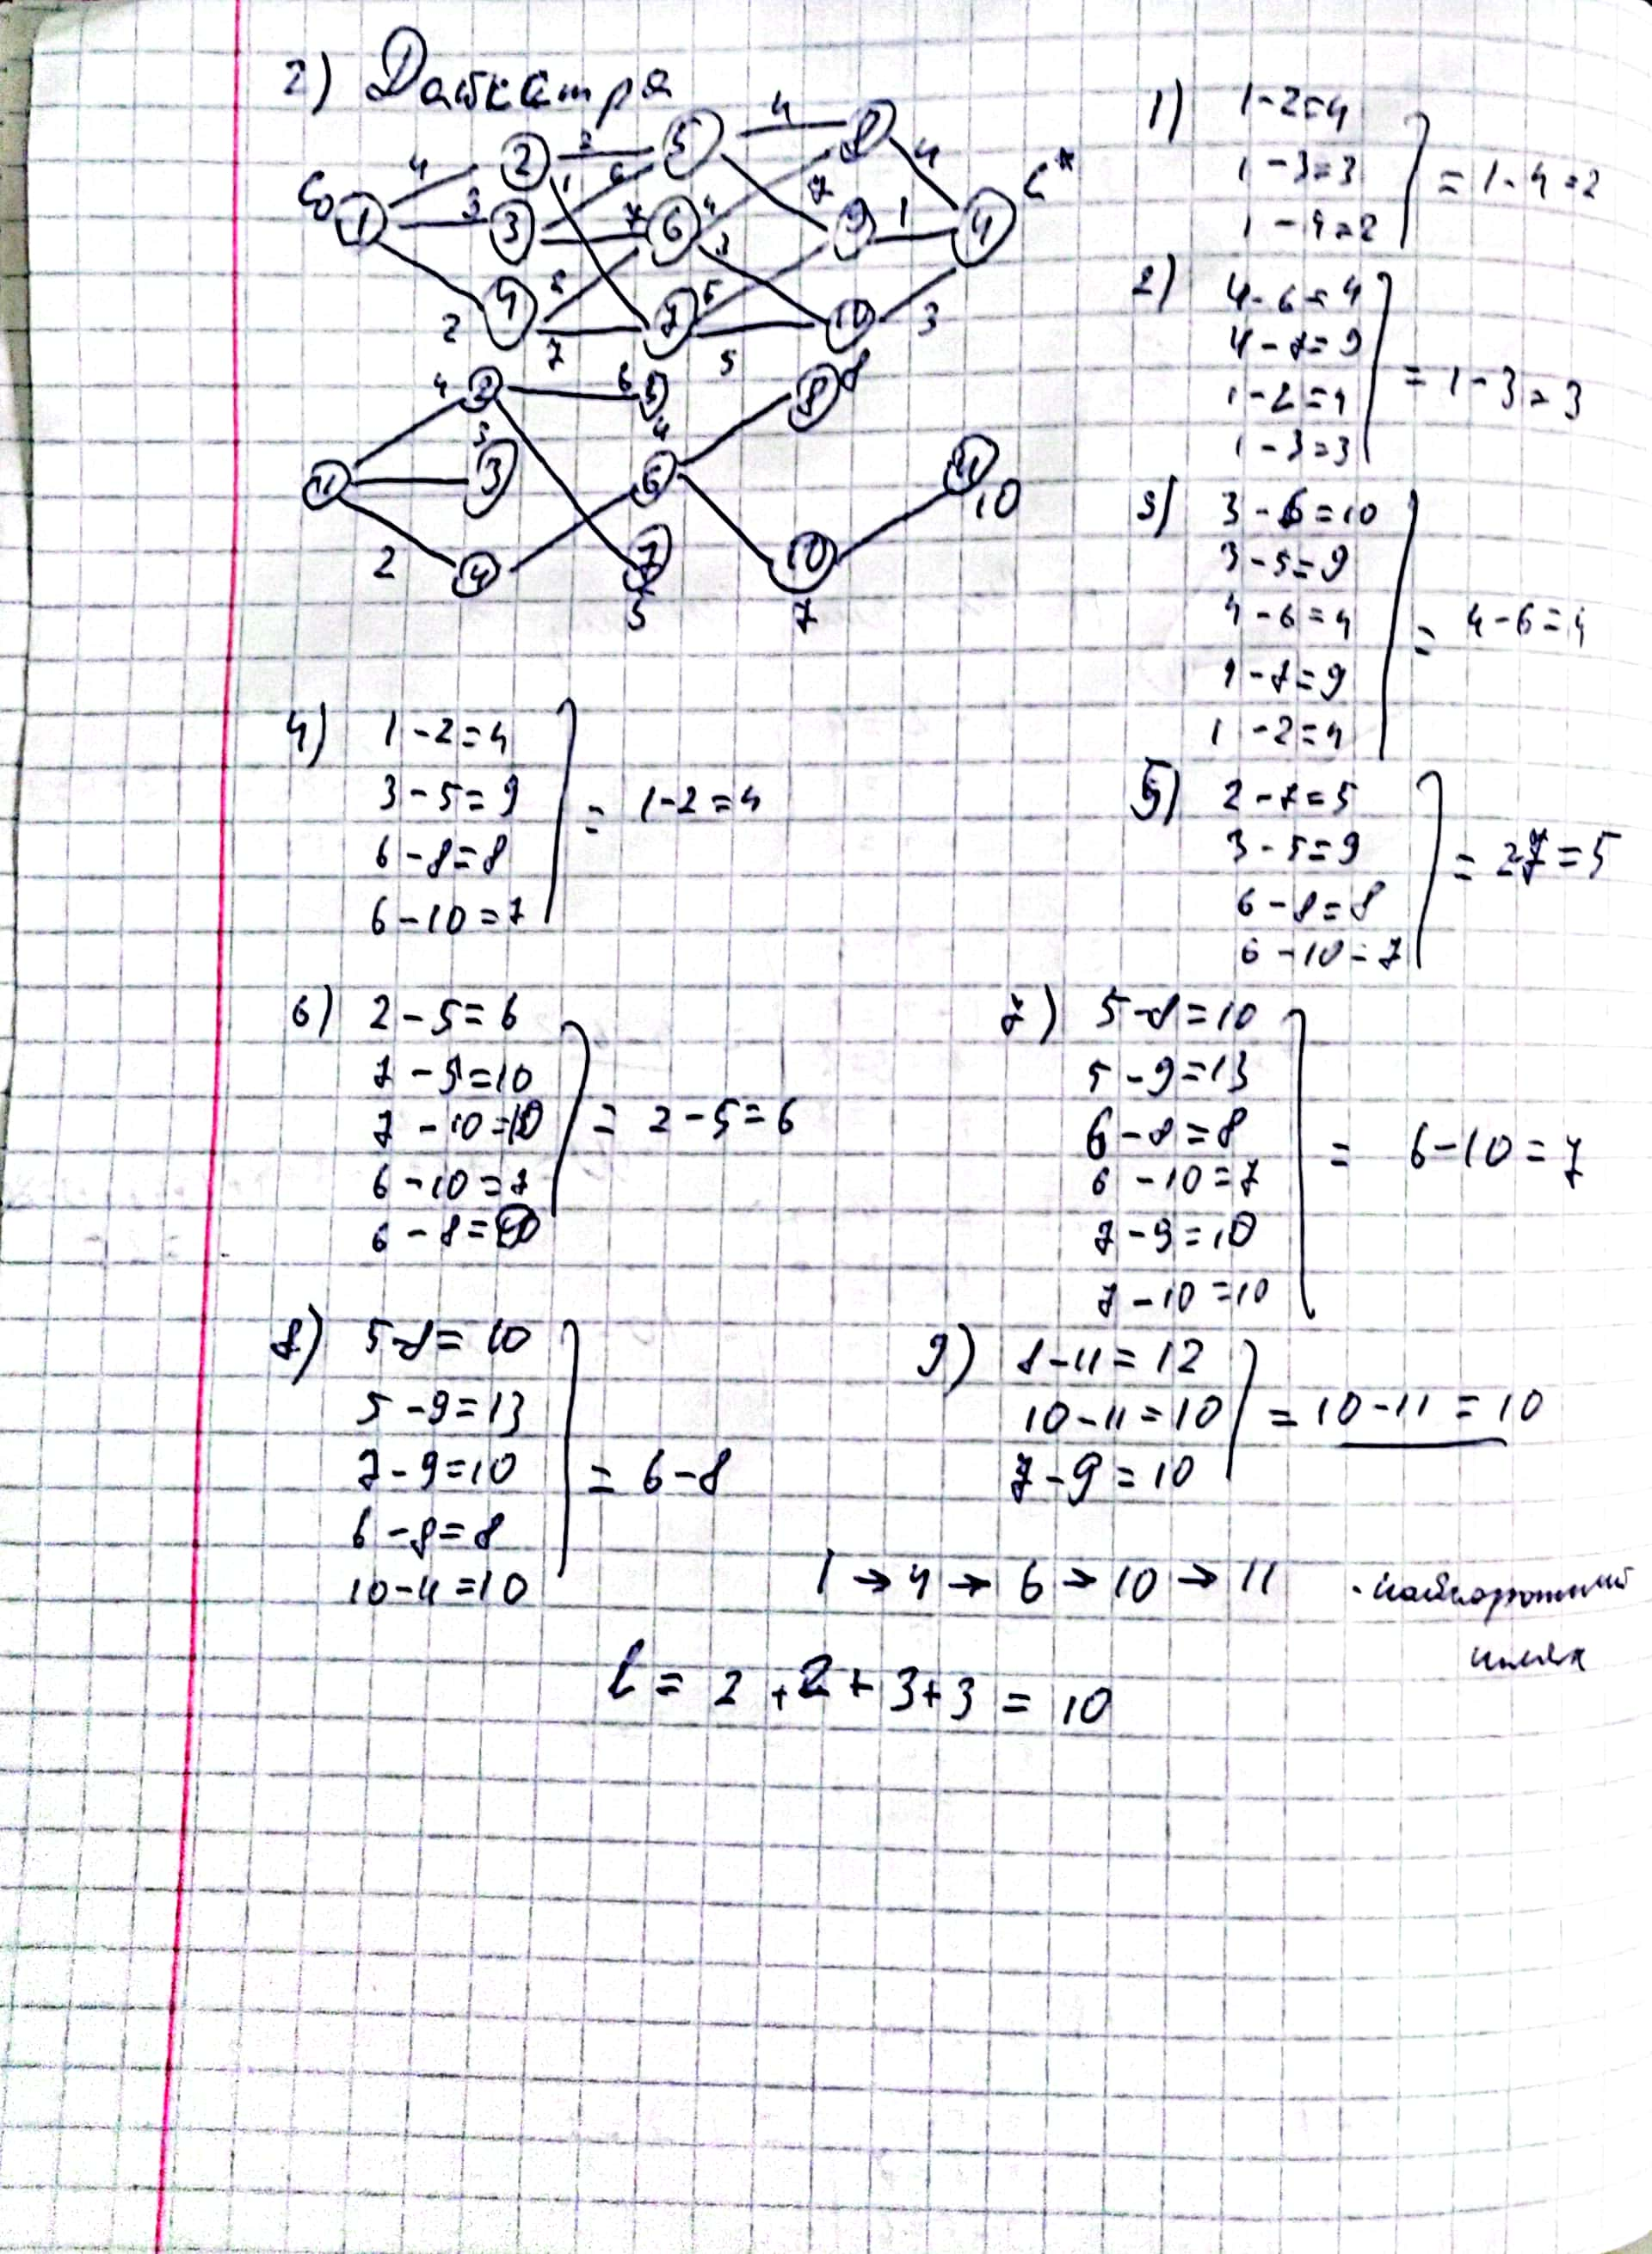 2) Дайкстра
1) 1-2=4
1-3=3
1-4=2
= 1-4=2
2) 4-6=4
4-7=9
1-2=4
1-3=3
= 1-3=3
3) 3-6=10
3-5=9
4-6=4
4-7=9
1-2=4
= 4-6=4
4) 1-2=4
3-5=9
6-8=8
6-10=7
= 1-2=4
5) 2-7=5
3-5=9
6-8=8
6-10=7
= 27=5
6) 2-5=6
7-9=10
7-10=10
6-10=7
6-8=
= 2-5=6
7) 5-8=10
5-9=13
6-8=8
6-10=7
7-9=10
7-10=10
= 6-10=7
8) 5-8=10
5-9=13
7-9=10
6-8=8
10-11=10
= 6-8
9) 8-11=12
10-11=10
7-9=10
= 10-11=10
1→4→6→10→11 - найкоротший
шлях
l = 2+2+3+3=10